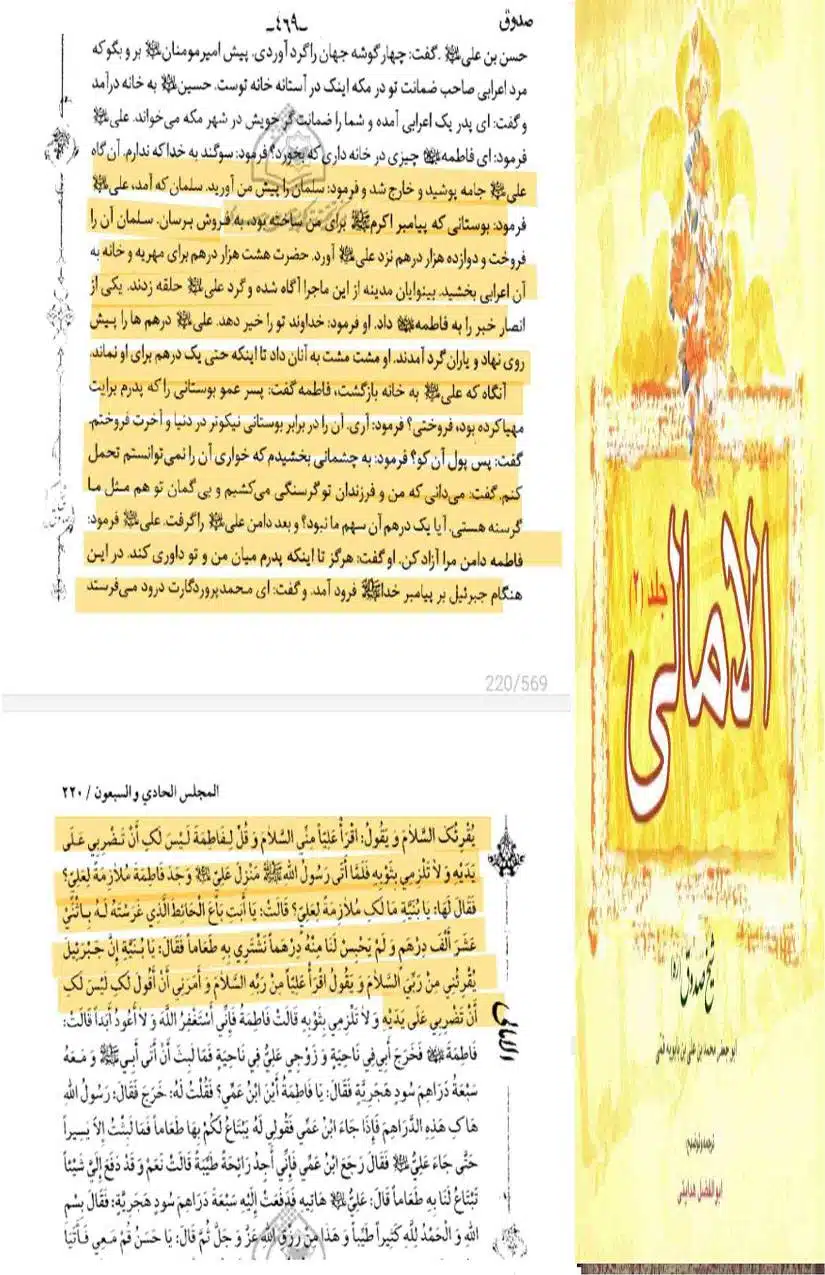 صدوق
ـ٤٦٩ـ
حسن بن علی﷣ .گفت: چهارگوشه جهان را گرد آوردی. پیش امیرمومنان﷣ برو بگو که
مرد اعرابی صاحب ضمانت تو در مکه اینک در آستانه خانه توست. حسین﷣ به خانه درآمد
و گفت: ای پدر یک اعرابی آمده و شما را ضمانت گر خویش در شهر مکه می‌خواند. علی﷣
فرمود: ای فاطمه﷣ چیزی در خانه داری که بخورد؟ فرمود: سوگند به خدا که ندارم. آن گاه
علی﷣ جامه پوشید و خارج شد و فرمود: سلمان را پیش من آورید. سلمان که آمد، علی﷣
فرمود: بوستانی که پیامبر اکرمﷺ برای من ساخته بود، به فروش برسان. سلمان آن را
فروخت و دوازده هزار درهم نزد علی﷣ آورد. حضرت هشت هزار درهم برای مهریه و خانه به
آن اعرابی بخشید. بینوایان مدینه از این ماجرا آگاه شده و گرد علی﷣ حلقه زدند. یکی از
انصار خبر را به فاطمه﷣ داد. او فرمود: خداوند تو را خیر دهد. علی﷣ درهم ها را پیش
روی نهاد و یاران گرد آمدند. او مشت مشت به آنان داد تا اینکه حتی یک درهم برای او نماند.
آنگاه که علی﷣ به خانه بازگشت، فاطمه گفت: پسر عمو بوستانی را که پدرم برایت
مهیا کرده بود، فروختی؟ فرمود: آری. آن را در برابر بوستانی نیکوتر در دنیا و آخرت فروختم.
گفت: پس پول آن کو؟ فرمود: به چشمانی بخشیدم که خواری آن را نمی‌توانستم تحمل
کنم. گفت: می‌دانی که من و فرزندان تو گرسنگی می‌کشیم و بی‌گمان تو هم مثل ما
گرسنه هستی. آیا یک درهم آن سهم ما نبود؟ و بعد دامن علی﷣ را گرفت. علی﷣ فرمود:
فاطمه دامن مرا آزاد کن. او گفت: هرگز تا اینکه پدرم میان من و تو داوری کند. در این
هنگام جبرئیل بر پیامبر خداﷺ فرود آمد. و گفت: ای محمد پروردگارت درود می‌فرستد
220/569
المجلس الحادي والسبعون / ٢٢٠
يُقْرِئُكَ السَّلَامَ وَ يَقُولُ: اقْرَأْ عَلِيّاً مِنِّي السَّلَامَ وَ قُلْ لِفَاطِمَةَ لَيْسَ لَكِ أَنْ تَضْرِبِي عَلَى
يَدَيْهِ وَ لَا تَلْزِمِي بِثَوْبِهِ فَلَمَّا أَتَى رَسُولُ اللهِﷺ مَنْزِلَ عَلِيٍّ﷣ وَجَدَ فَاطِمَةَ مُلَازِمَةً لِعَلِيٍّ؟
فَقَالَ لَهَا: يَا بُنَيَّةِ مَا لَكِ مُلَازِمَةً لِعَلِيٍّ؟ قَالَتْ: يَا أَبَتِ بَاعَ الْحَائِطَ الَّذِي غَرَسْتَهُ لَهُ بِاثْنَيْ
عَشَرَ أَلْفَ دِرْهَمٍ وَ لَمْ يَحْبِسْ لَنَا مِنْهُ دِرْهَماً نَشْتَرِي بِهِ طَعَاماً فَقَالَ: يَا بُنَيَّةِ إِنَّ جَبْرَئِيلَ
يُقْرِئُنِي مِنْ رَبِّيَ السَّلَامَ وَ يَقُولُ اقْرَأْ عَلِيّاً مِنْ رَبِّهِ السَّلَامَ وَ أَمَرَنِي أَنْ أَقُولَ لَكِ لَيْسَ لَكِ
أَنْ تَضْرِبِي عَلَى يَدَيْهِ وَ لَا تَلْزِمِي بِثَوْبِهِ قَالَتْ فَاطِمَةُ فَإِنِّي أَسْتَغْفِرُ اللهَ وَ لَا أَعُودُ أَبَداً قَالَتْ:
فَاطِمَةُ﷣ فَخَرَجَ أَبِي فِي نَاحِيَةٍ وَ زَوْجِي عَلِيٌّ فِي نَاحِيَةٍ فَمَا لَبِثَ أَنْ أَتَى أَبِيﷺ وَ مَعَهُ
سَبْعَةُ دَرَاهِمَ سُودٍ هَجَرِيَّةٍ فَقَالَ: يَا فَاطِمَةُ أَيْنَ ابْنُ عَمِّي؟ فَقُلْتُ لَهُ: خَرَجَ فَقَالَ: رَسُولُ اللهِ
هَاكِ هَذِهِ الدَّرَاهِمَ فَإِذَا جَاءَ ابْنُ عَمِّي فَقُولِي لَهُ يَبْتَاعُ لَكُمْ بِهَا طَعَاماً فَمَا لَبِثْتُ إِلَّا يَسِيراً
حَتَّى جَاءَ عَلِيٌّ﷣ فَقَالَ رَجَعَ ابْنُ عَمِّي فَإِنِّي أَجِدُ رَائِحَةً طَيِّبَةً قَالَتْ نَعَمْ وَ قَدْ دَفَعَ إِلَيَّ شَيْئاً
تَبْتَاعُ لَنَا بِهِ طَعَاماً قَالَ: عَلِيٌّ﷣ هَاتِيهِ فَدَفَعْتُ إِلَيْهِ سَبْعَةَ دَرَاهِمَ سُودٍ هَجَرِيَّةٍ: فَقَالَ بِسْمِ
اللهِ وَ الْحَمْدُ لِلَّهِ كَثِيراً طَيِّباً وَ هَذَا مِنْ رِزْقِ اللهِ عَزَّ وَ جَلَّ ثُمَّ قَالَ: يَا حَسَنُ قُمْ مَعِي فَأَتَيَا
الامالی
الامالی
جلد (٢)
شیخ صدوق (ره)
ابو جعفر محمد بن علی بن بابویه قمی
ترجمه و توضیح:
ابوالفضل هدایتی